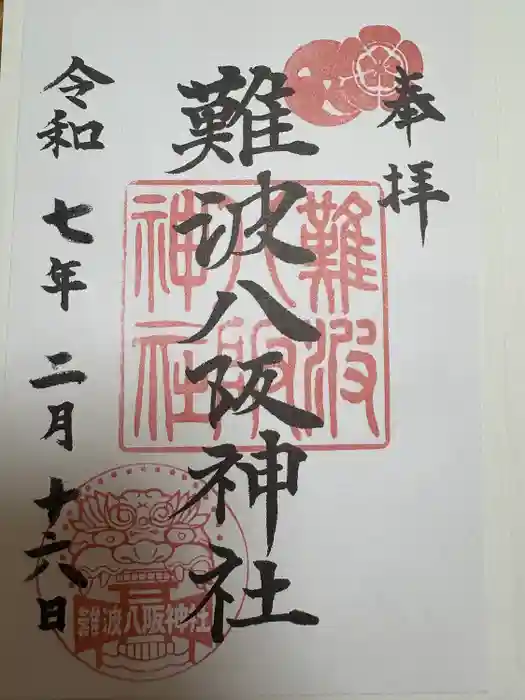 奉拝
難波八阪神社
令和七年二月十六日
難波八阪神社
難波八阪神社